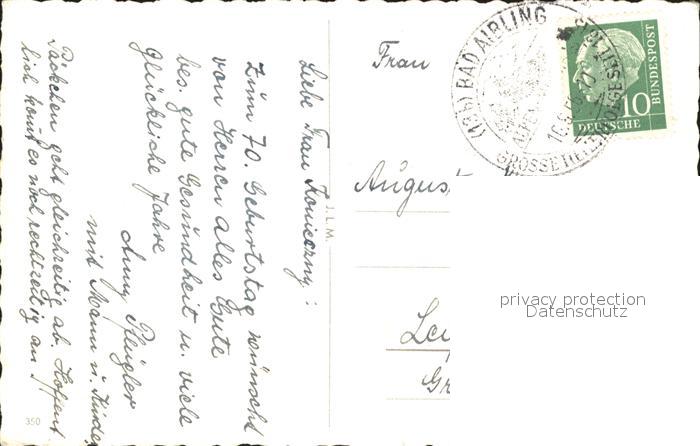 Liebe Frau Konieczny!
Zum 70. Geburtstag wünscht
von Herzen alles Gute
bes. gute Gesundheit u. viele
glückliche Jahre
Anny
mit Mann u. Kinder
Päckchen geht gleichzeitig ab. Hoffent
lich kommt es noch rechtzeitig an!
350
J.L.M.
Frau
August
Lei
Gr
(13b) BAD AIBLING
GROSSE HEILERFOLGE SEIT
10
DEUTSCHE
BUNDESPOST
privacy protection
Datenschutz